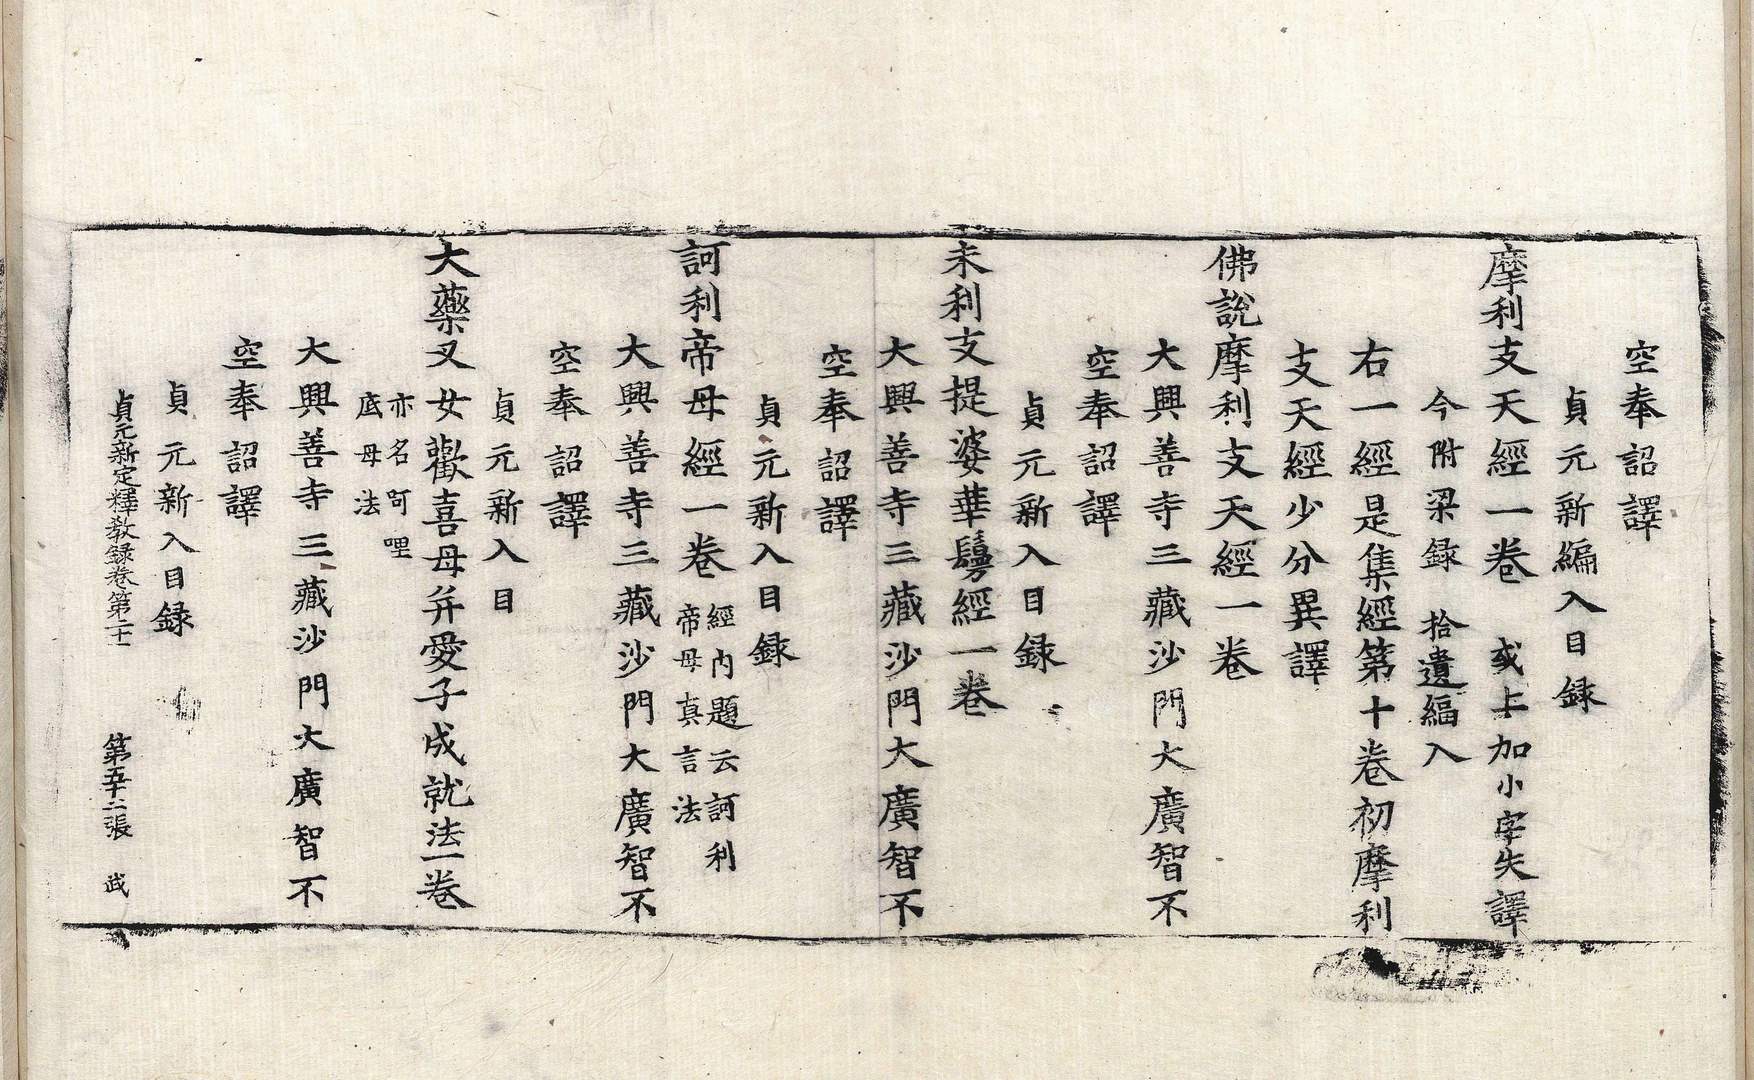 空奉詔譯
貞元新編入目録
摩利支天經一卷 或上加小字失譯
今附梁録 拾遺編入
右一經是集經第十卷初摩利
支天經少分異譯
佛說摩利支天經一卷
大興善寺三藏沙門大廣智不
空奉詔譯
貞元新入目録
末利支提婆華鬘經一卷
大興善寺三藏沙門大廣智不
空奉詔譯
貞元新入目録
訶利帝母經一卷 經内題云訶利
帝母真言法
大興善寺三藏沙門大廣智不
空奉詔譯
貞元新入目
大藥叉女歡喜母并愛子成就法一卷
亦名訶哩
底母法
大興善寺三藏沙門大廣智不
空奉詔譯
貞元新入目録
貞元新定釋教録卷第二十 第五十二張 武